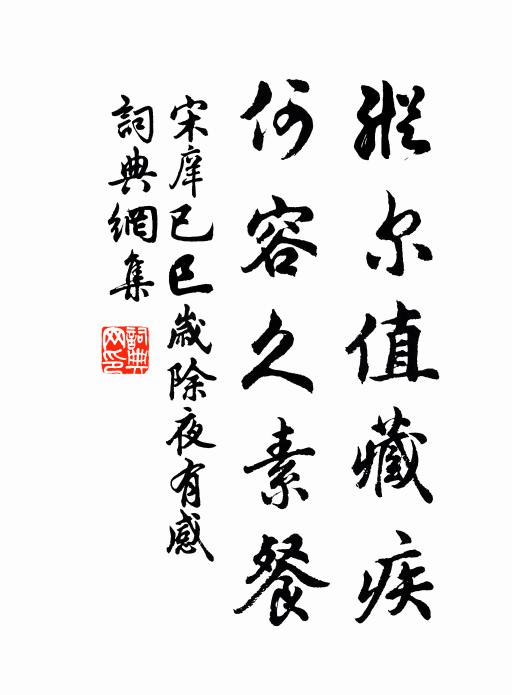 縱尔值藏疾
何容久素餐
宋庠己巳歲除夜有感
詞典網集
詞典
网印